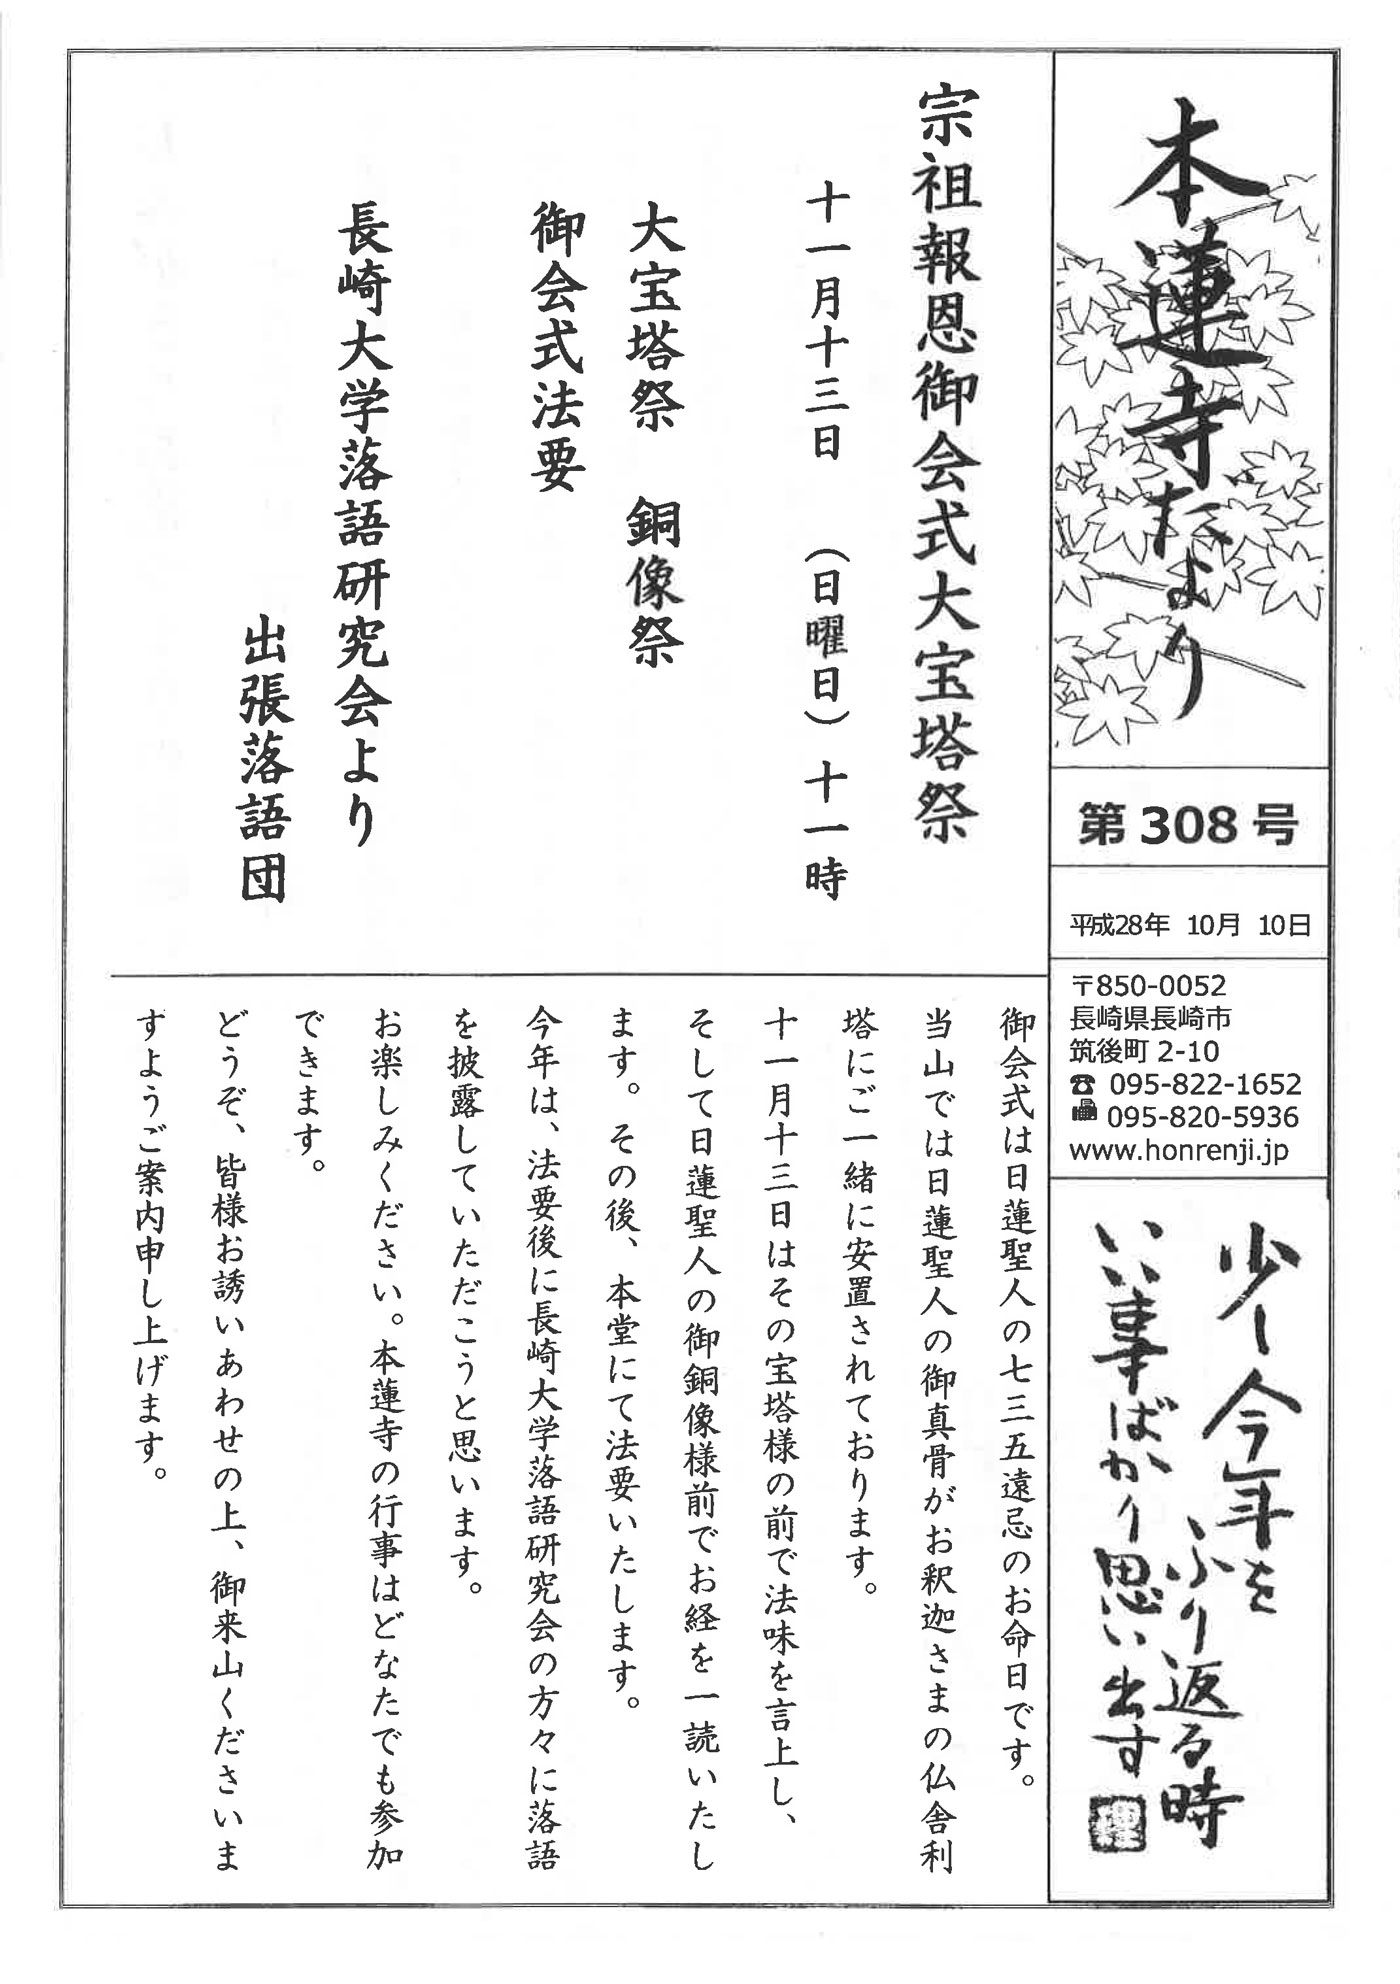 本蓮寺たより
第308号
平成28年 10月 10日
〒850-0052
長崎県長崎市
筑後町 2-10
☎ 095-822-1652
095-820-5936
www.honrenji.jp
少し今年を
ふり返る時
いい事ばかり思い出す
宗祖報恩御会式大宝塔祭
十一月十三日 (日曜日) 十一時
大宝塔祭 銅像祭
御会式法要
長崎大学落語研究会より
出張落語団
御会式は日蓮聖人の七三五遠忌のお命日です。
当山では日蓮聖人の御真骨がお釈迦さまの仏舎利
塔にご一緒に安置されております。
十一月十三日はその宝塔様の前で法味を言上し、
そして日蓮聖人の御銅像様前でお経を一読いたし
ます。その後、本堂にて法要いたします。
今年は、法要後に長崎大学落語研究会の方々に落語
を披露していただこうと思います。
お楽しみください。本蓮寺の行事はどなたでも参加
できます。
どうぞ、皆様お誘いあわせの上、御来山くださいま
すようご案内申し上げます。